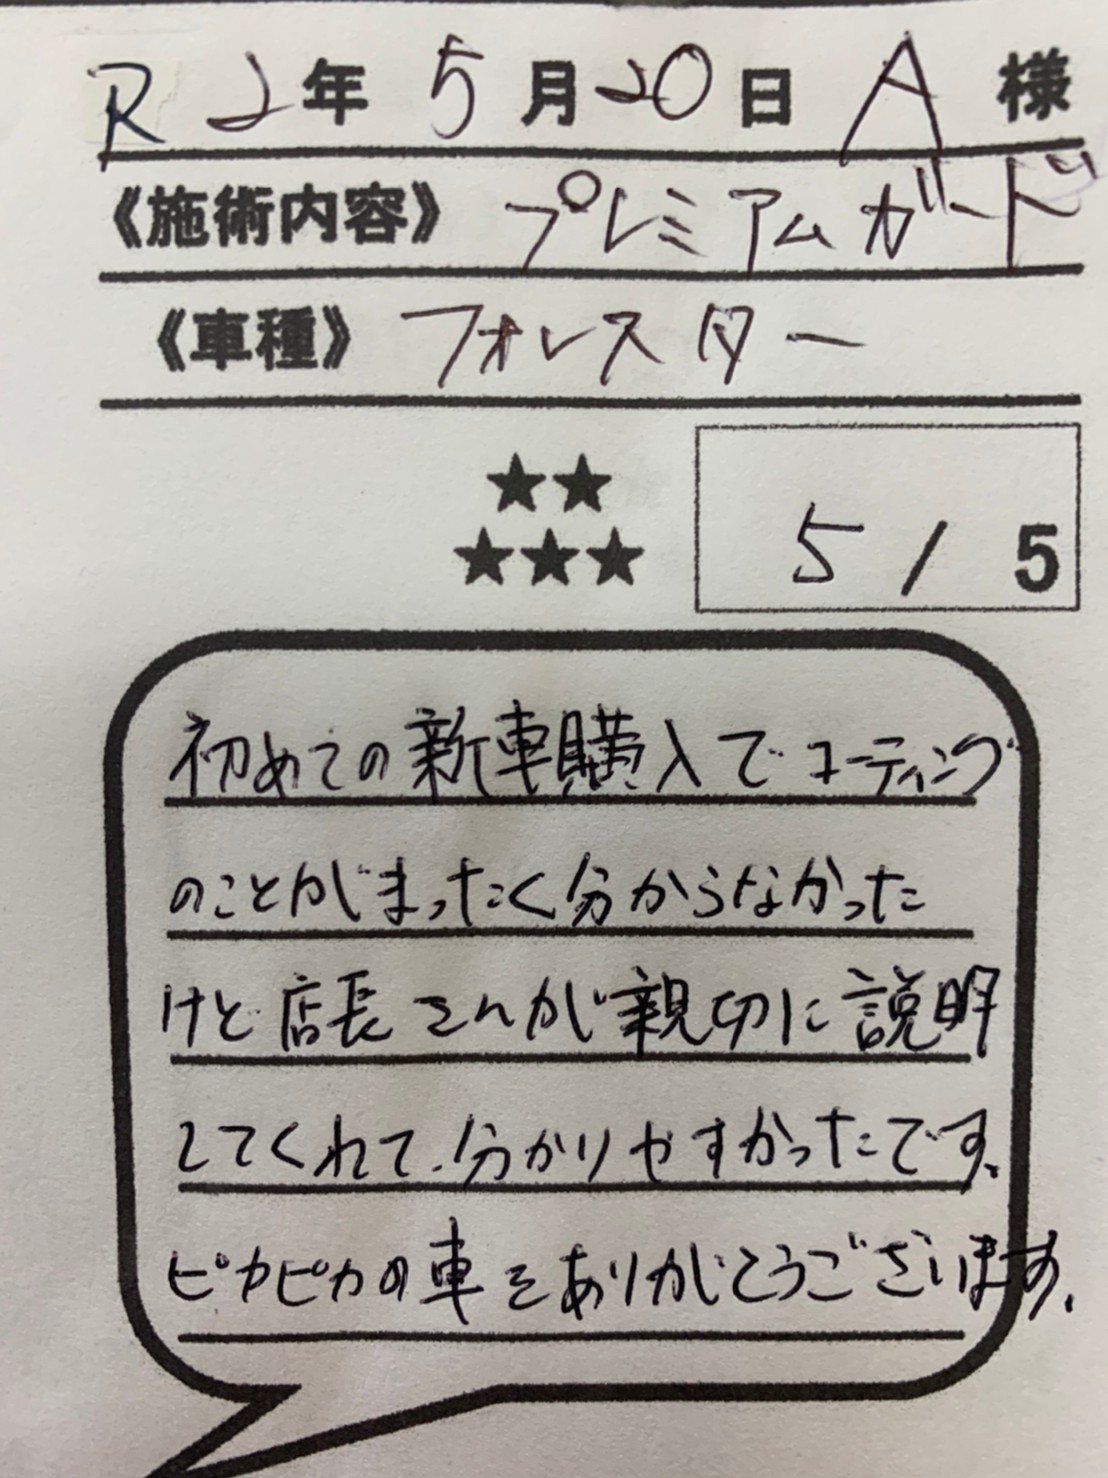 R 2年 5月20日 A 様
《施術内容》 プレミアムガード
《車種》 フォレスター
★★
★★★
5 / 5
初めての新車購入でコーティング
のことがまったく分からなかった
けど店長さんが親切に説明
してくれて、分かりやすかったです。
ピカピカの車をありがとうございます。